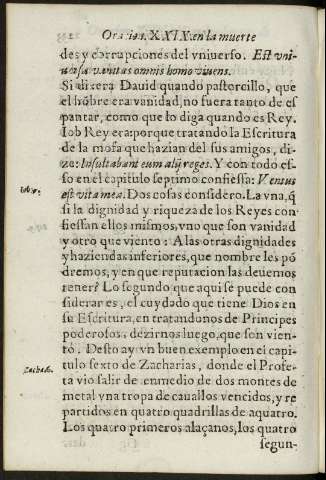 Oracion. XXIX. en la muerte
des y corrupciones del vniuerso. Est vni-
uersa vanitas omnis homo viuens.
Si dixera Dauid quando pastorcillo, que
el hõbre era vanidad, no fuera tanto de es
pantar, como que lo diga quando es Rey.
Iob Rey era: porque tratando la Escritura
de la mofa que hazian del sus amigos, di-
ze: Insultabant eum alij reges. Y con todo es-
so en el capitulo septimo confiessa: Ventus
Iob. 7.
est vita mea. Dos cosas considero. La vna, q̃
si la dignidad y riqueza de los Reyes con
fiessan ellos mismos, vno que son vanidad
y otro que viento: A las otras dignidades
y haziendas inferiores, que nombre les pó
dremos, y en que reputacion las deuemos
tener? Lo segundo que aqui se puede con
siderar es, el cuydado que tiene Dios en
su Escritura, en tratandonos de Principes
poderosos, dezirnos luego, que son vien-
tó. Desto ay vn buen exemplo en el capi-
tulo sexto de Zacharias, donde el Profe-
Zachar. 6.
ta vio salir de enmedio de dos montes de
metal vna tropa de cauallos vencidos, y re
partidos en quatro quadrillas de a quatro.
Los quatro primeros alaçanos, los quatro
segun-